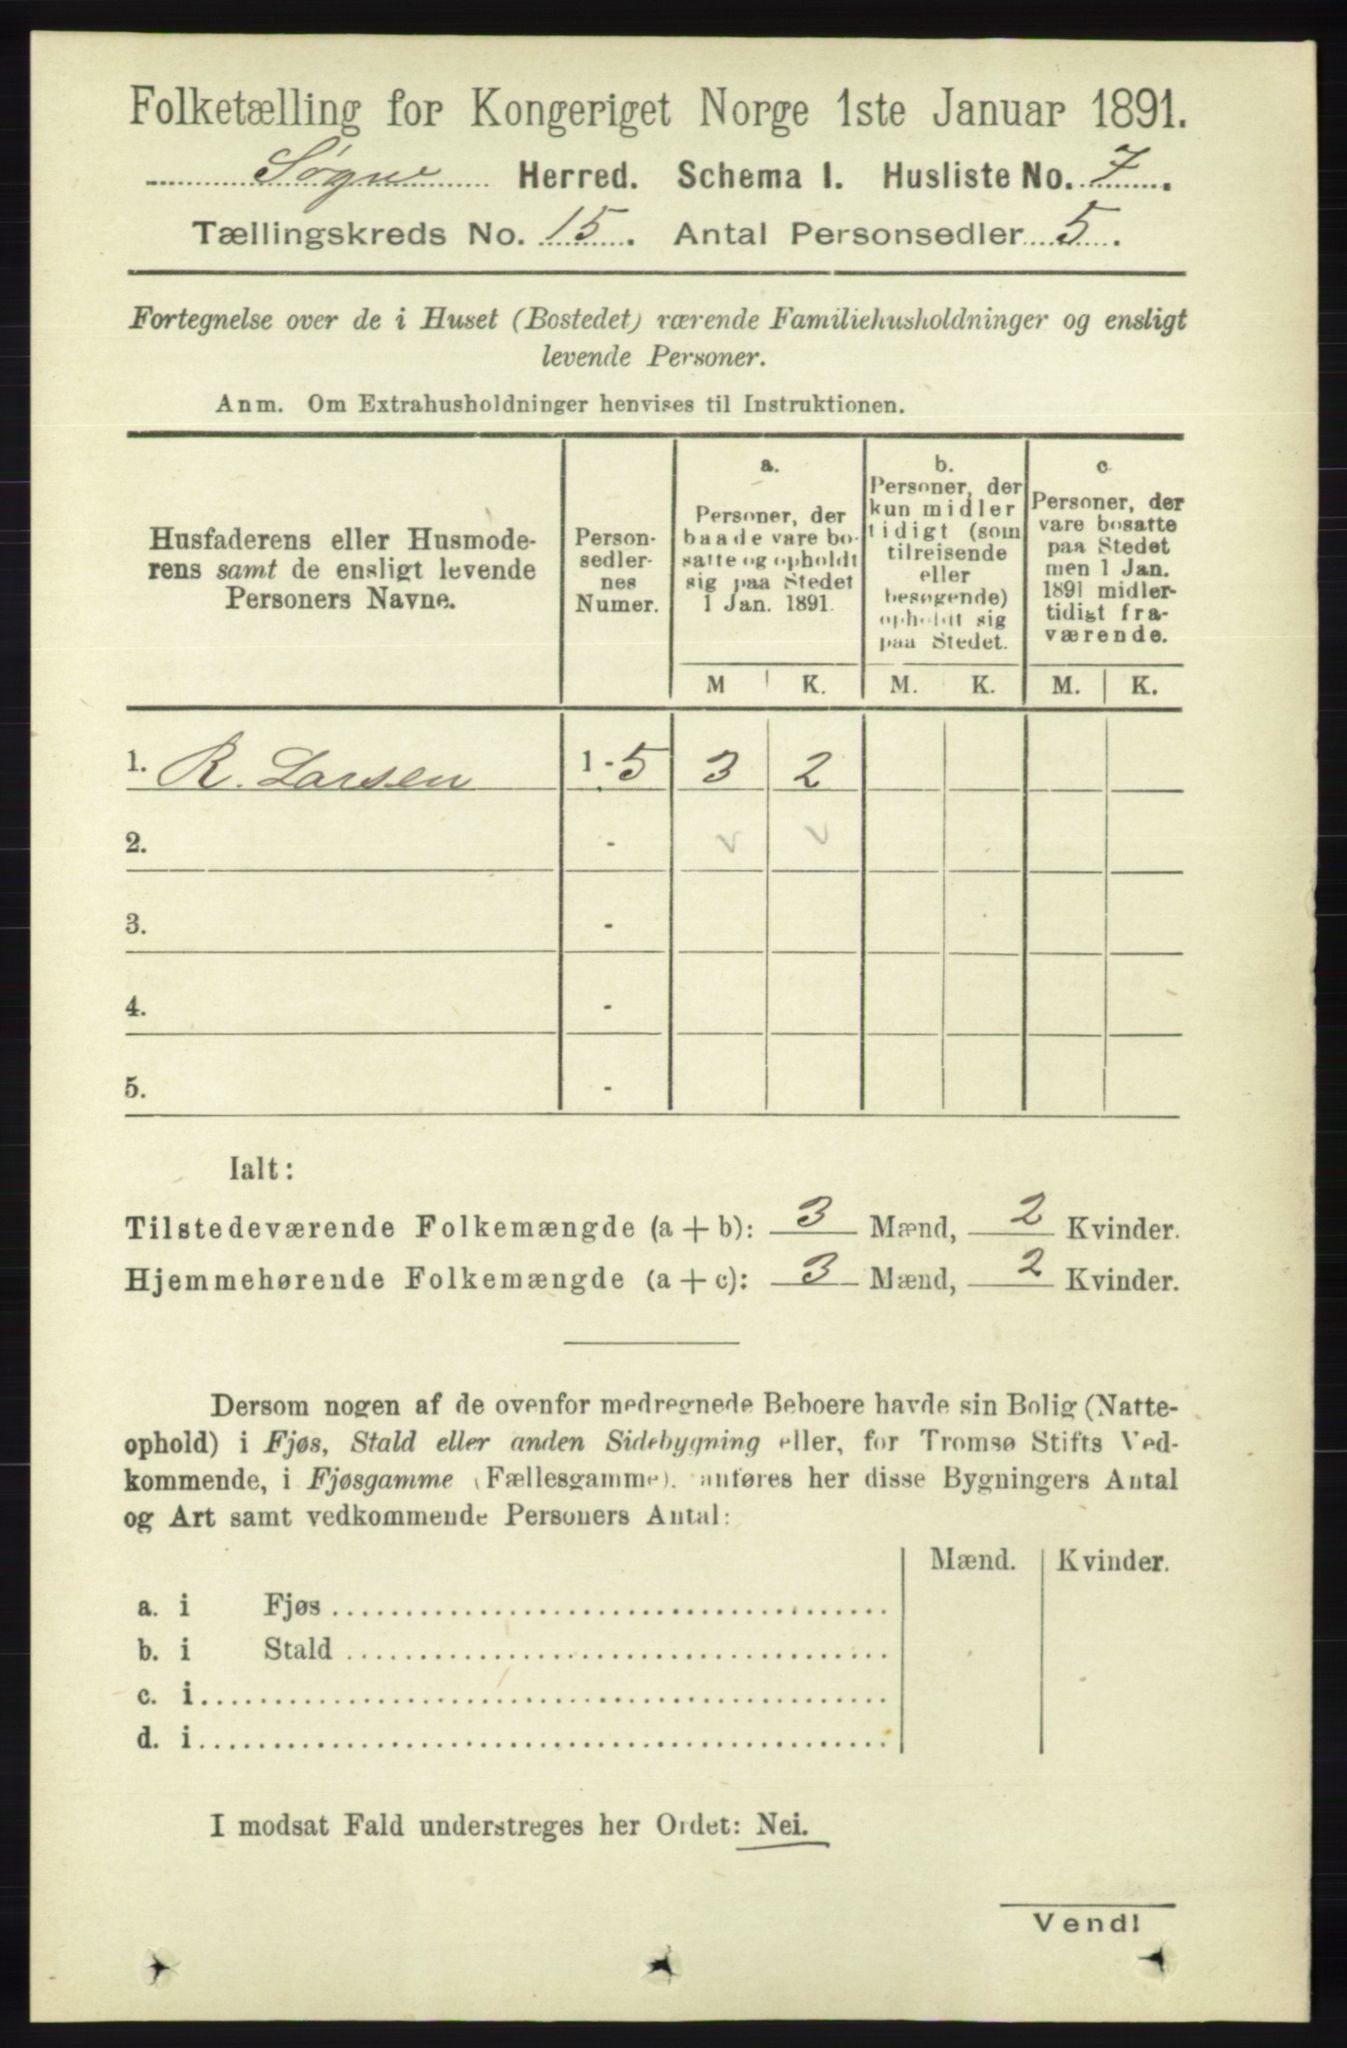 Folketælling for Kongeriget Norge 1ste Januar 1891.
Søgne Herred. Schema I. Husliste No. 7.
Tællingskreds No. 15. Antal Personsedler 5.
Fortegnelse over de i Huset (Bostedet) værende Familiehusholdninger og ensligt
levende Personer.
Anm. Om Extrahusholdninger henvises til Instruktionen.
Husfaderens eller Husmode-
rens samt de ensligt levende
Personers Navne.
Person-
sedler-
nes
Numer.
a.
Personer, der
baade vare bo-
satte og opholdt
sig paa Stedet
1 Jan. 1891.
b.
Personer, der
kun midler
tidigt (som
tilreisende
eller
besøgende)
opholdt sig
paa Stedet.
c
Personer, der
vare bosatte
paa Stedet
men 1 Jan.
1891 midler-
tidigt fra-
værende.
M K. M. K. M. K.
1. R. Larsen 1 - 5 3 2
2. -
3. -
4. -
5. -
Ialt:
Tilstedeværende Folkemængde (a + b): 3 Mænd, 2 Kvinder.
Hjemmehørende Folkemængde (a + c): 3 Mænd, 2 Kvinder.
Dersom nogen af de ovenfor medregnede Beboere havde sin Bolig (Natte-
ophold) i Fjøs, Stald eller anden Sidebygning eller, for Tromsø Stifts Ved-
kommende, i Fjøsgamme (Fællesgamme). anføres her disse Bygningers Antal
og Art samt vedkommende Personers Antal:
Mænd. Kvinder.
a. i Fjøs
b. i Stald
c. i
d. i
I modsat Fald understreges her Ordet: Nei.
Vend!